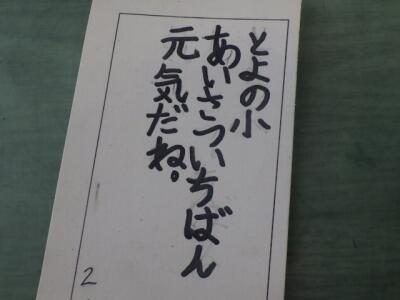 とよの小
あいさついちばん
元気だね。
2